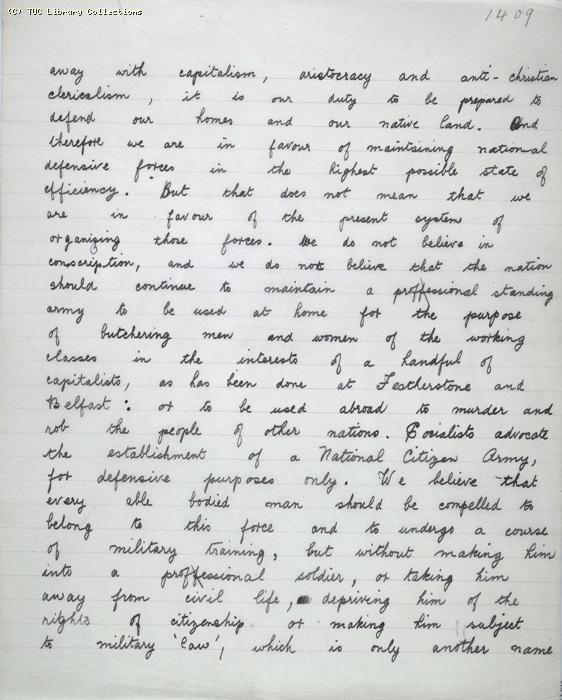 (C) TUC Library Collections
1409
away with capitalism, aristocracy and anti-christian
clericalism, it is our duty to be prepared to
defend our homes and our native land. And
therefore we are in favour of maintaining national
defensive forces in the highest possible state of
efficiency. But that does not mean that we
are in favour of the present system of
organizing those forces. We do not believe in
conscription, and we do not believe that the nation
should continue to maintain a proffessional standing
army to be used at home for the purpose
of butchering men and women of the working
classes in the interests of a handful of
capitalists, as has been done at Featherstone and
Belfast: or to be used abroad to murder and
rob the people of other nations. Socialists advocate
the establishment of a National Citizen Army,
for defensive purposes only. We believe that
every able bodied man should be compelled to
belong to this force and to undergo a course
of military training, but without making him
into a proffessional soldier, or taking him
away from civil life, depriving him of the
rights of citizenship or making him subject
to military 'law', which is only another name